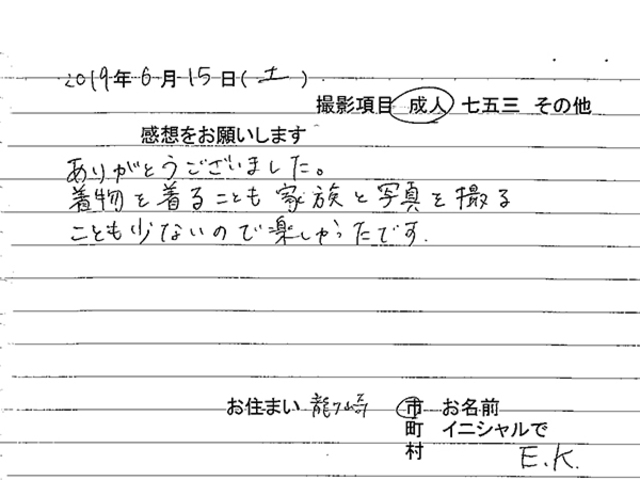 2019年6月15日(土)
撮影項目 成人 七五三 その他
感想をお願いします
ありがとうございました。
着物を着ることも家族と写真を撮る
ことも少ないので楽しかったです.
お住まい 龍ケ崎 市 お名前
町 イニシャルで
村 E.K.